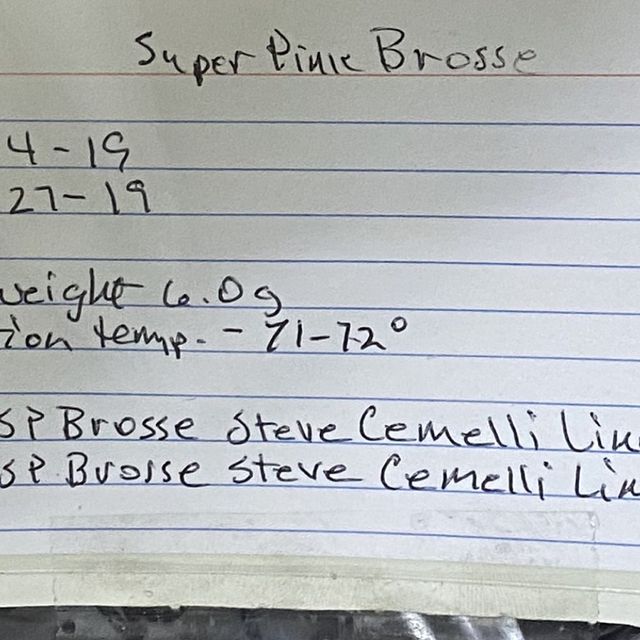 Super Pink Brosse
4-19
27-19
weight 6.0g
ion temp. - 71-72°
SP Brosse Steve Cemelli Lin
SP. Brosse Steve Cemelli Lin